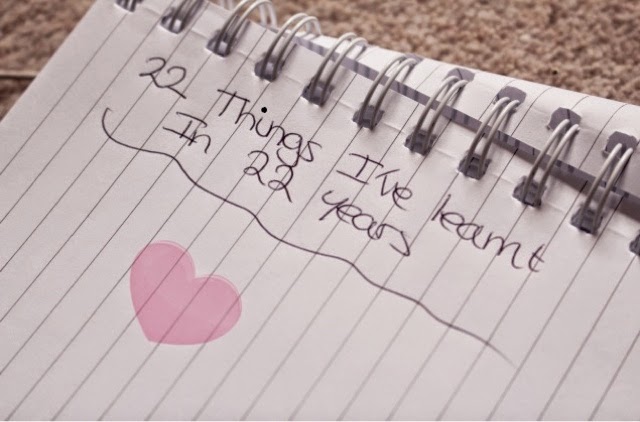 22 Things I've learnt
In 22 years